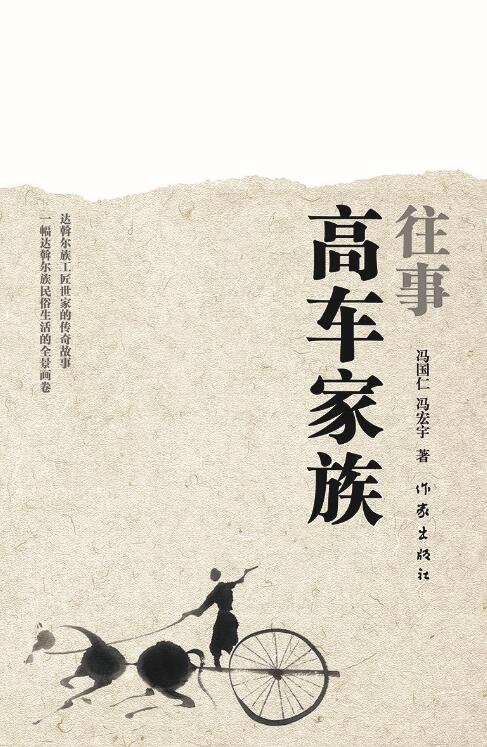 往事
高车家族
冯国仁 冯宏宇 著
作家出版社
达斡尔族工匠世家的传奇故事
一幅达斡尔族民俗生活的全景画卷